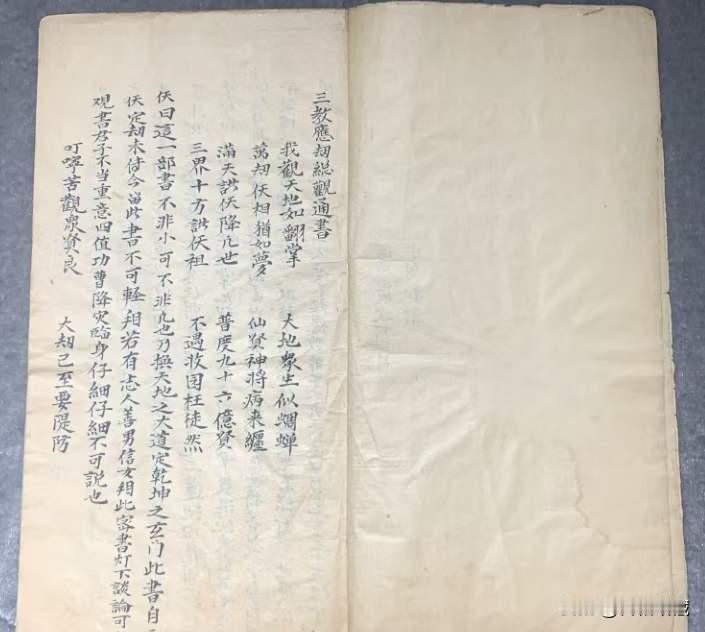 三教應劫總觀通書
我觀天地如翻掌　大地眾生似蜩蟬
萬劫仸相猶如夢　仙賢神將病來纏
滿天洪仸降凡世　普度九十六億賢
三界十方洪仸祖　不遇收圓枉徒然
仸曰這一部書不非小可不非凡也乃撫天地之大道定乾坤之玄門此書自
仸定刼未傳今留此書不可輕翔若有志人善男信女翔此密書灯下談論可
观書君子不当重意四值功曹降灾臨身仔細仔細不可說也
叮嚀苦觀眾賢良　大刼已至要隄防